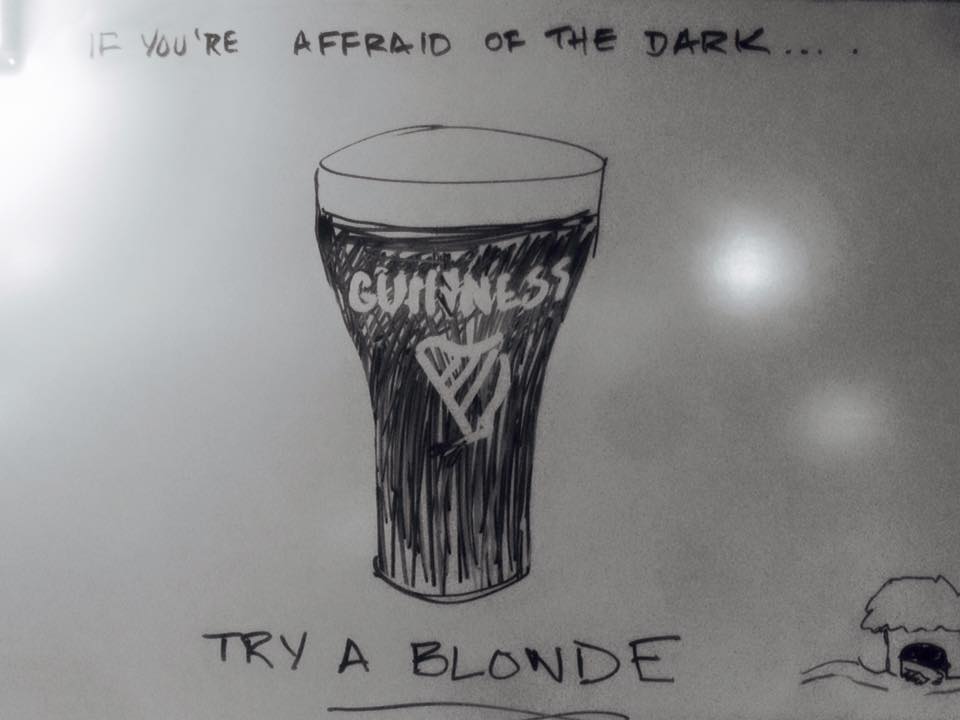 IF YOU'RE AFFRAID OF THE DARK.... .
GUINNESS
TRY A BLONDE